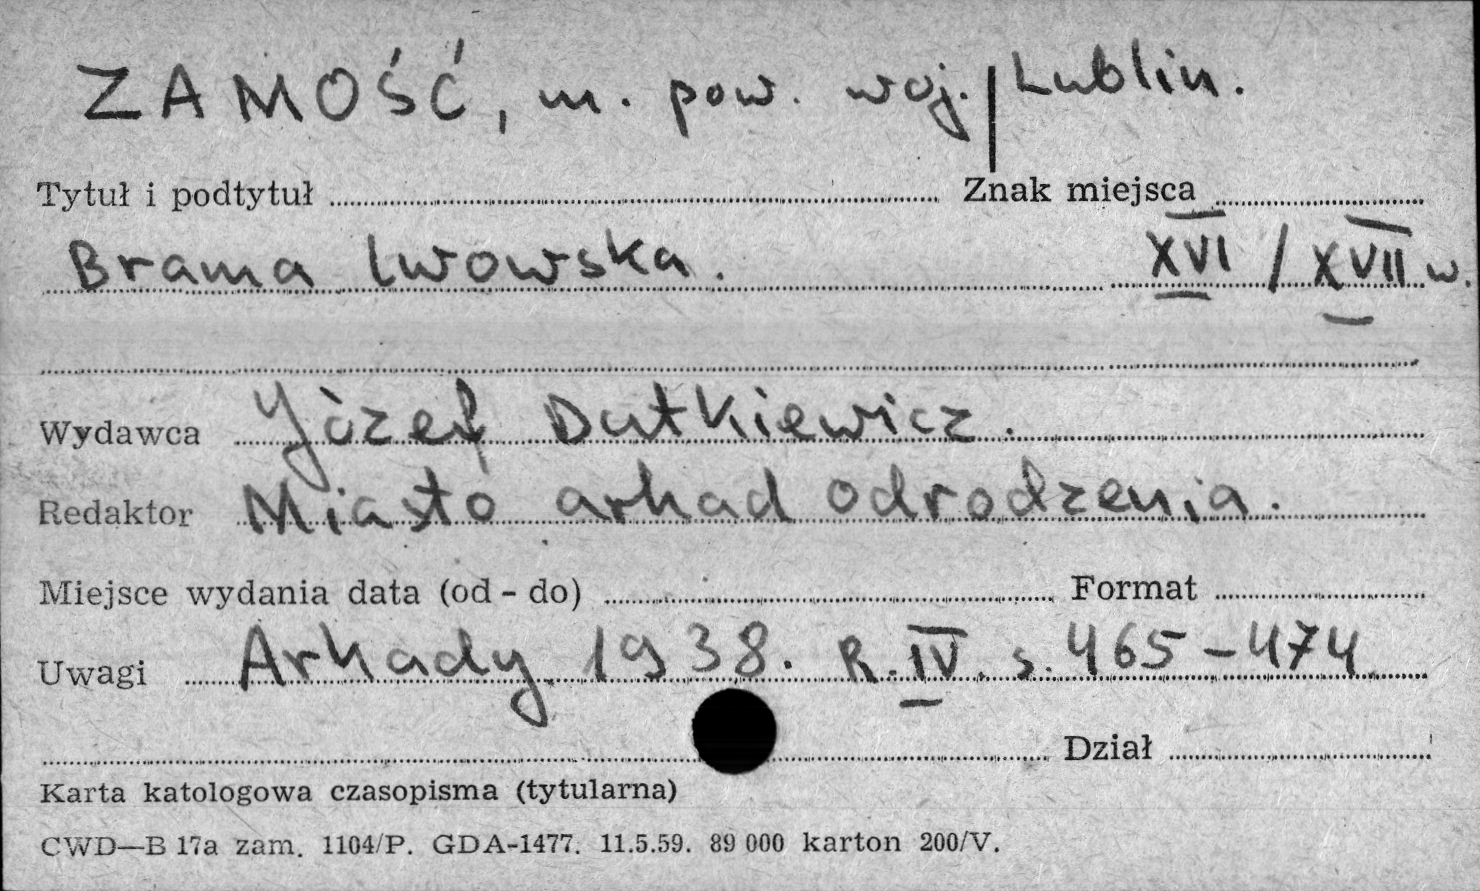 ZAMOŚĆ, m. pow. woj. | Lublin.
Tytuł i podtytuł Znak miejsca
Brama lwowska. XVI / XVII w.
Wydawca Józef Dutkiewicz.
Redaktor Miasto arkad odrodzenia.
Miejsce wydania data (od - do) Format
Uwagi Arkady. 1938. R. IV. s. 465-474.
Dział
Karta katologowa czasopisma (tytularna)
CWD—B 17a zam. 1104/P. GDA-1477. 11.5.59. 89 000 karton 200/V.